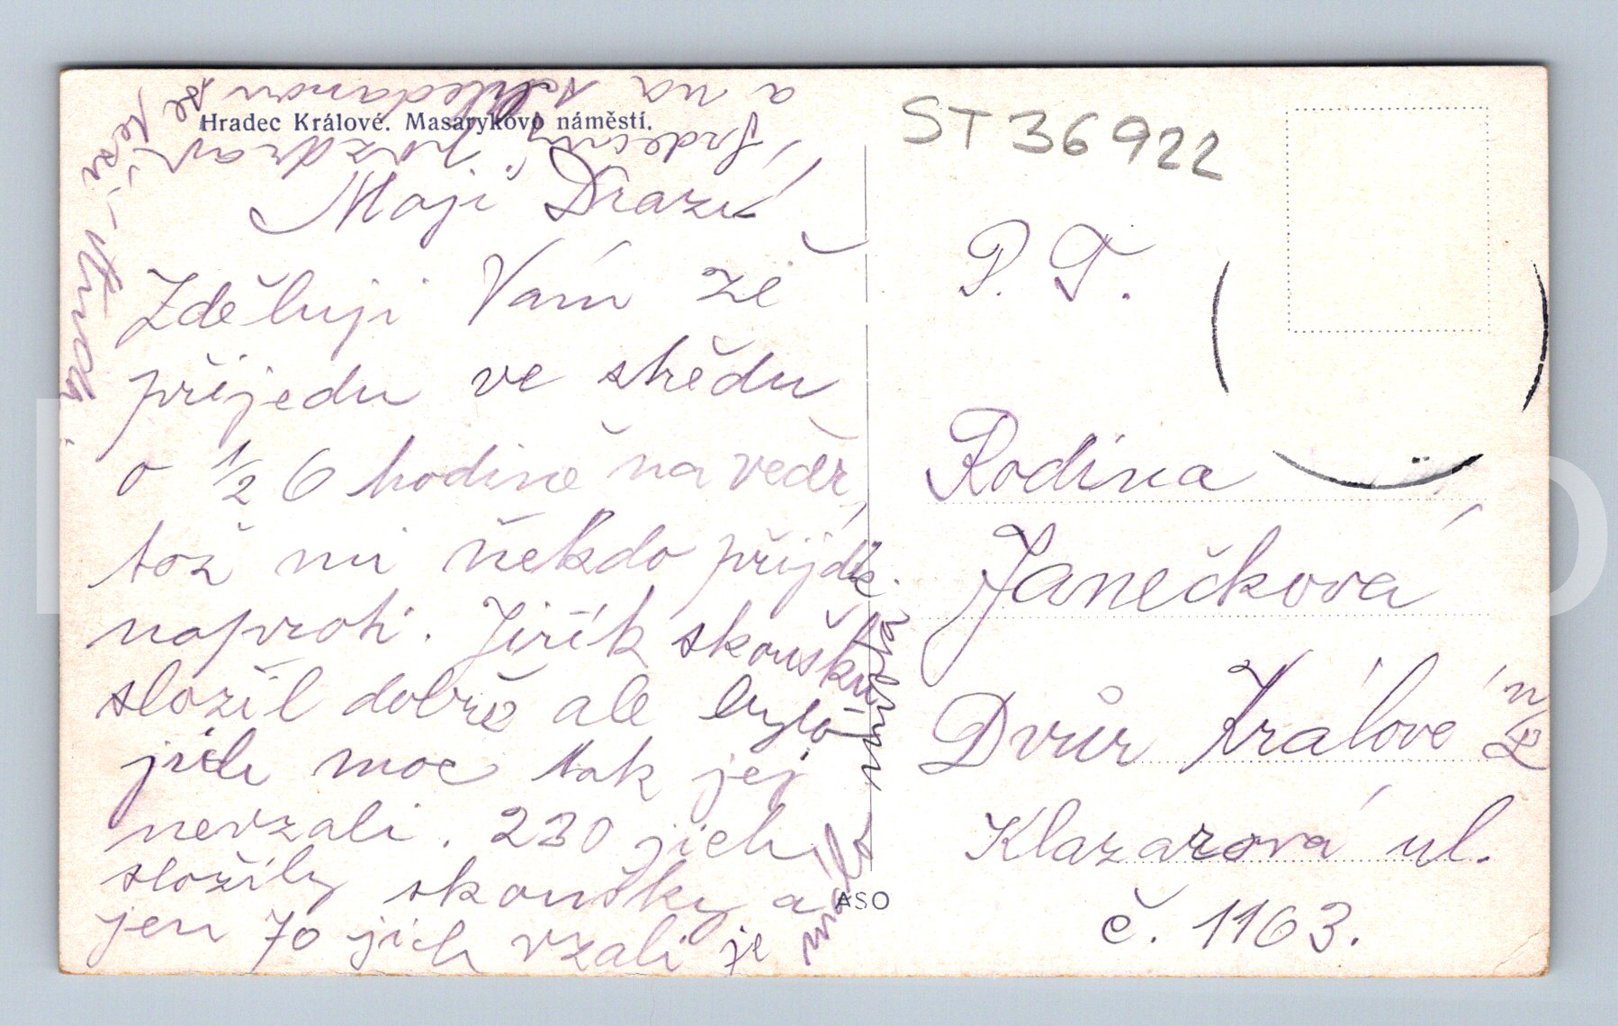 Hradec Králové. Masarykovo náměstí.
ST 36922
Moji Drazí
Zděluji Vám že
přijedu ve středu
o 1/2 6 hodině na večer,
tož mi někdo přijdte
naproti. Jiřík skoušku
složil dobře ale bylo
jich moc tak jej
nevzali. 230 jich
složily skoušky a
jen 70 jich vzali je
málo
a na shledanou se těší
Srdečný pozdrav
P. T.
Rodina
Janečková
Dvůr Králové n/L
Klazarová ul.
č. 1163.
ASO